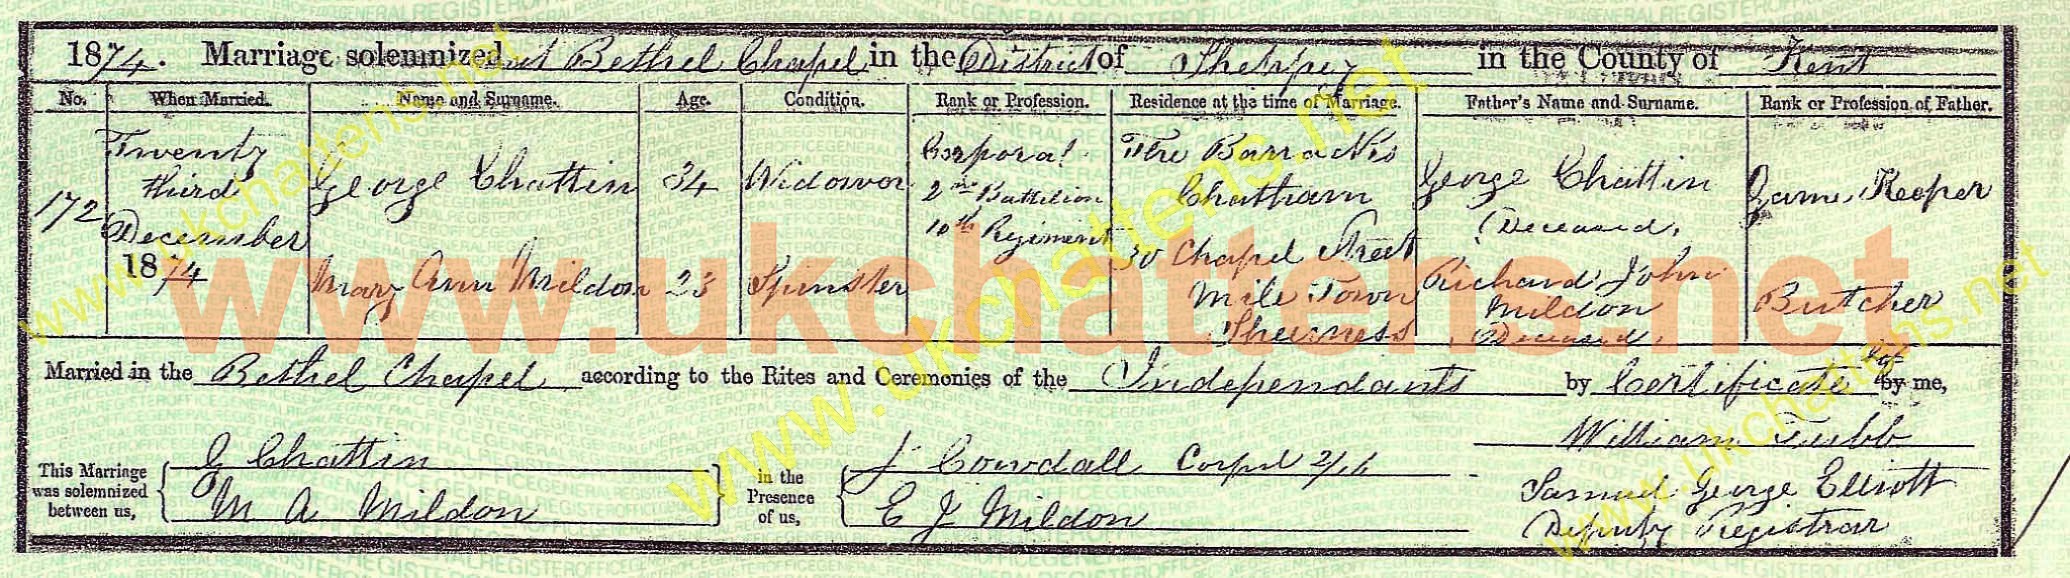 1874. Marriage solemnized at Bethel Chapel in the District of Sheppey in the County of Kent
No. When Married. Name and Surname. Age. Condition. Rank or Profession. Residence at the time of Marriage. Father's Name and Surname. Rank or Profession of Father.
172
Twenty
third
December
1874
George Chattin
34
Widower
Corporal
2nd Battalion
10th Regiment
The Barracks
Chatham
George Chattin
(Deceased)
Game Keeper
Mary Ann Mildon
23
Spinster
30 Chapel Street
Mile Town
Sheerness
Richard John
Mildon
Deceased.
Butcher
Married in the Bethel Chapel according to the Rites and Ceremonies of the Independants by Certificate by me,
This Marriage
was solemnized
between us,
G Chattin
M A Mildon
in the
Presence
of us,
J Cowdall Corpl
E J Mildon
William Tubb
Samuel George Elliott
Deputy Registrar
www.ukchattens.net
www.ukchattens.net
www.ukchattens.net
www.ukchattens.net